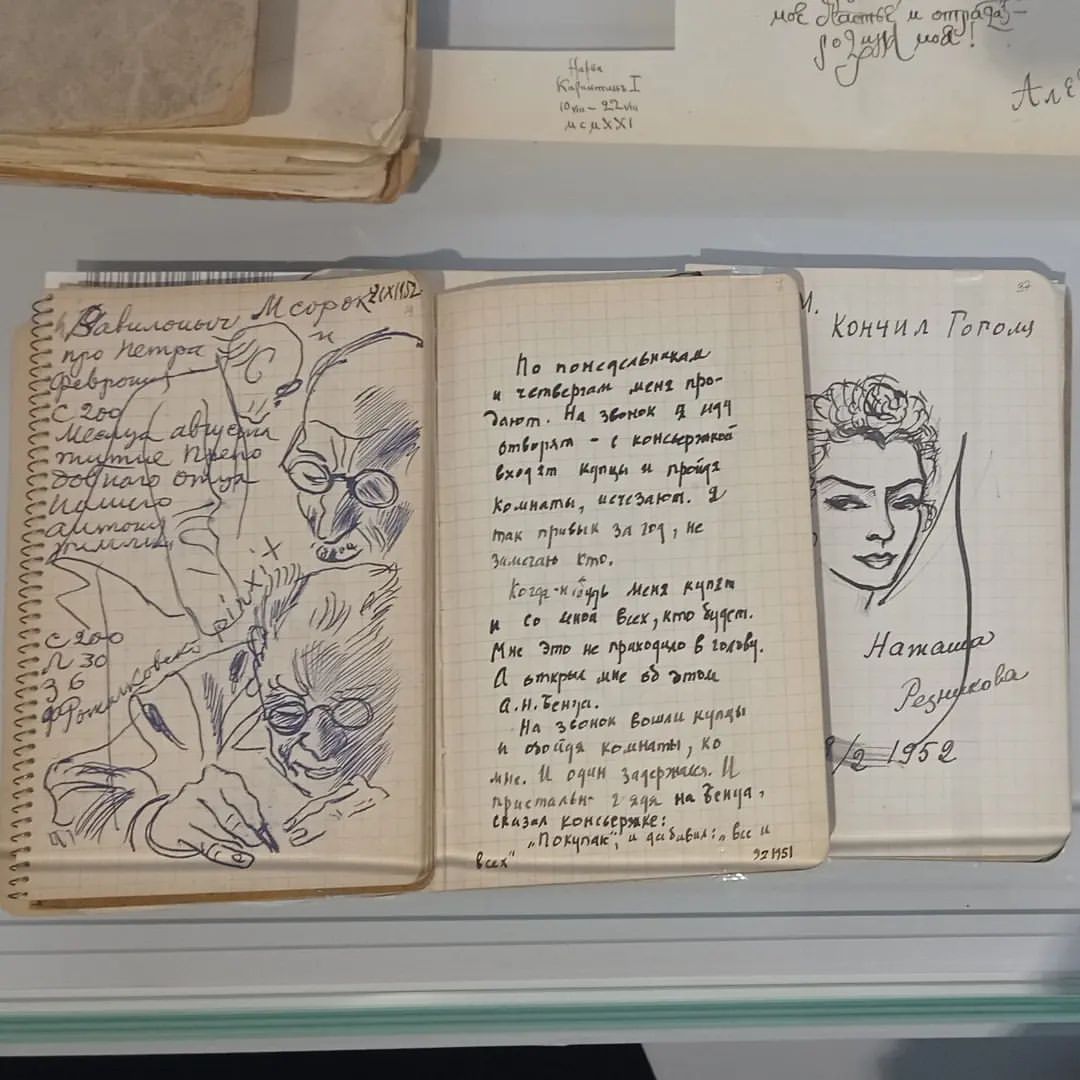 мое счастье и отрада –
родина моя!
Але
Нарва
Карантинъ I
10 VIII – 22 VIII
мсмXXI
Вавилоныч М сорок
21X1952
про Петра
Февронию
С 200
Месяца августа
житие Препо
добнаго отца
нашего
С 200
Л 30
З 6
pinxit
По понедельникам
и четвергам меня про-
дают. На звонок я иду
отворят – с консьержкой
входят купцы и пройдя
комнаты, исчезают. Я
так привык за год, не
замечаю кто.
Когда-нибудь меня купят
и со мной всех, кто будет.
Мне это не приходило в голову.
А открыл мне об этом
А.Н. Бенуа.
На звонок вошли купцы
и обойдя комнаты, ко
мне. И один задержался. И
пристальн глядя на Бенуа,
сказал консьержке:
„Покупаю“, и добавил: „все и
всех“
921951
37
М.
КОНЧИЛ ГОГОЛЯ
Наташа
Резникова
8/2 1952